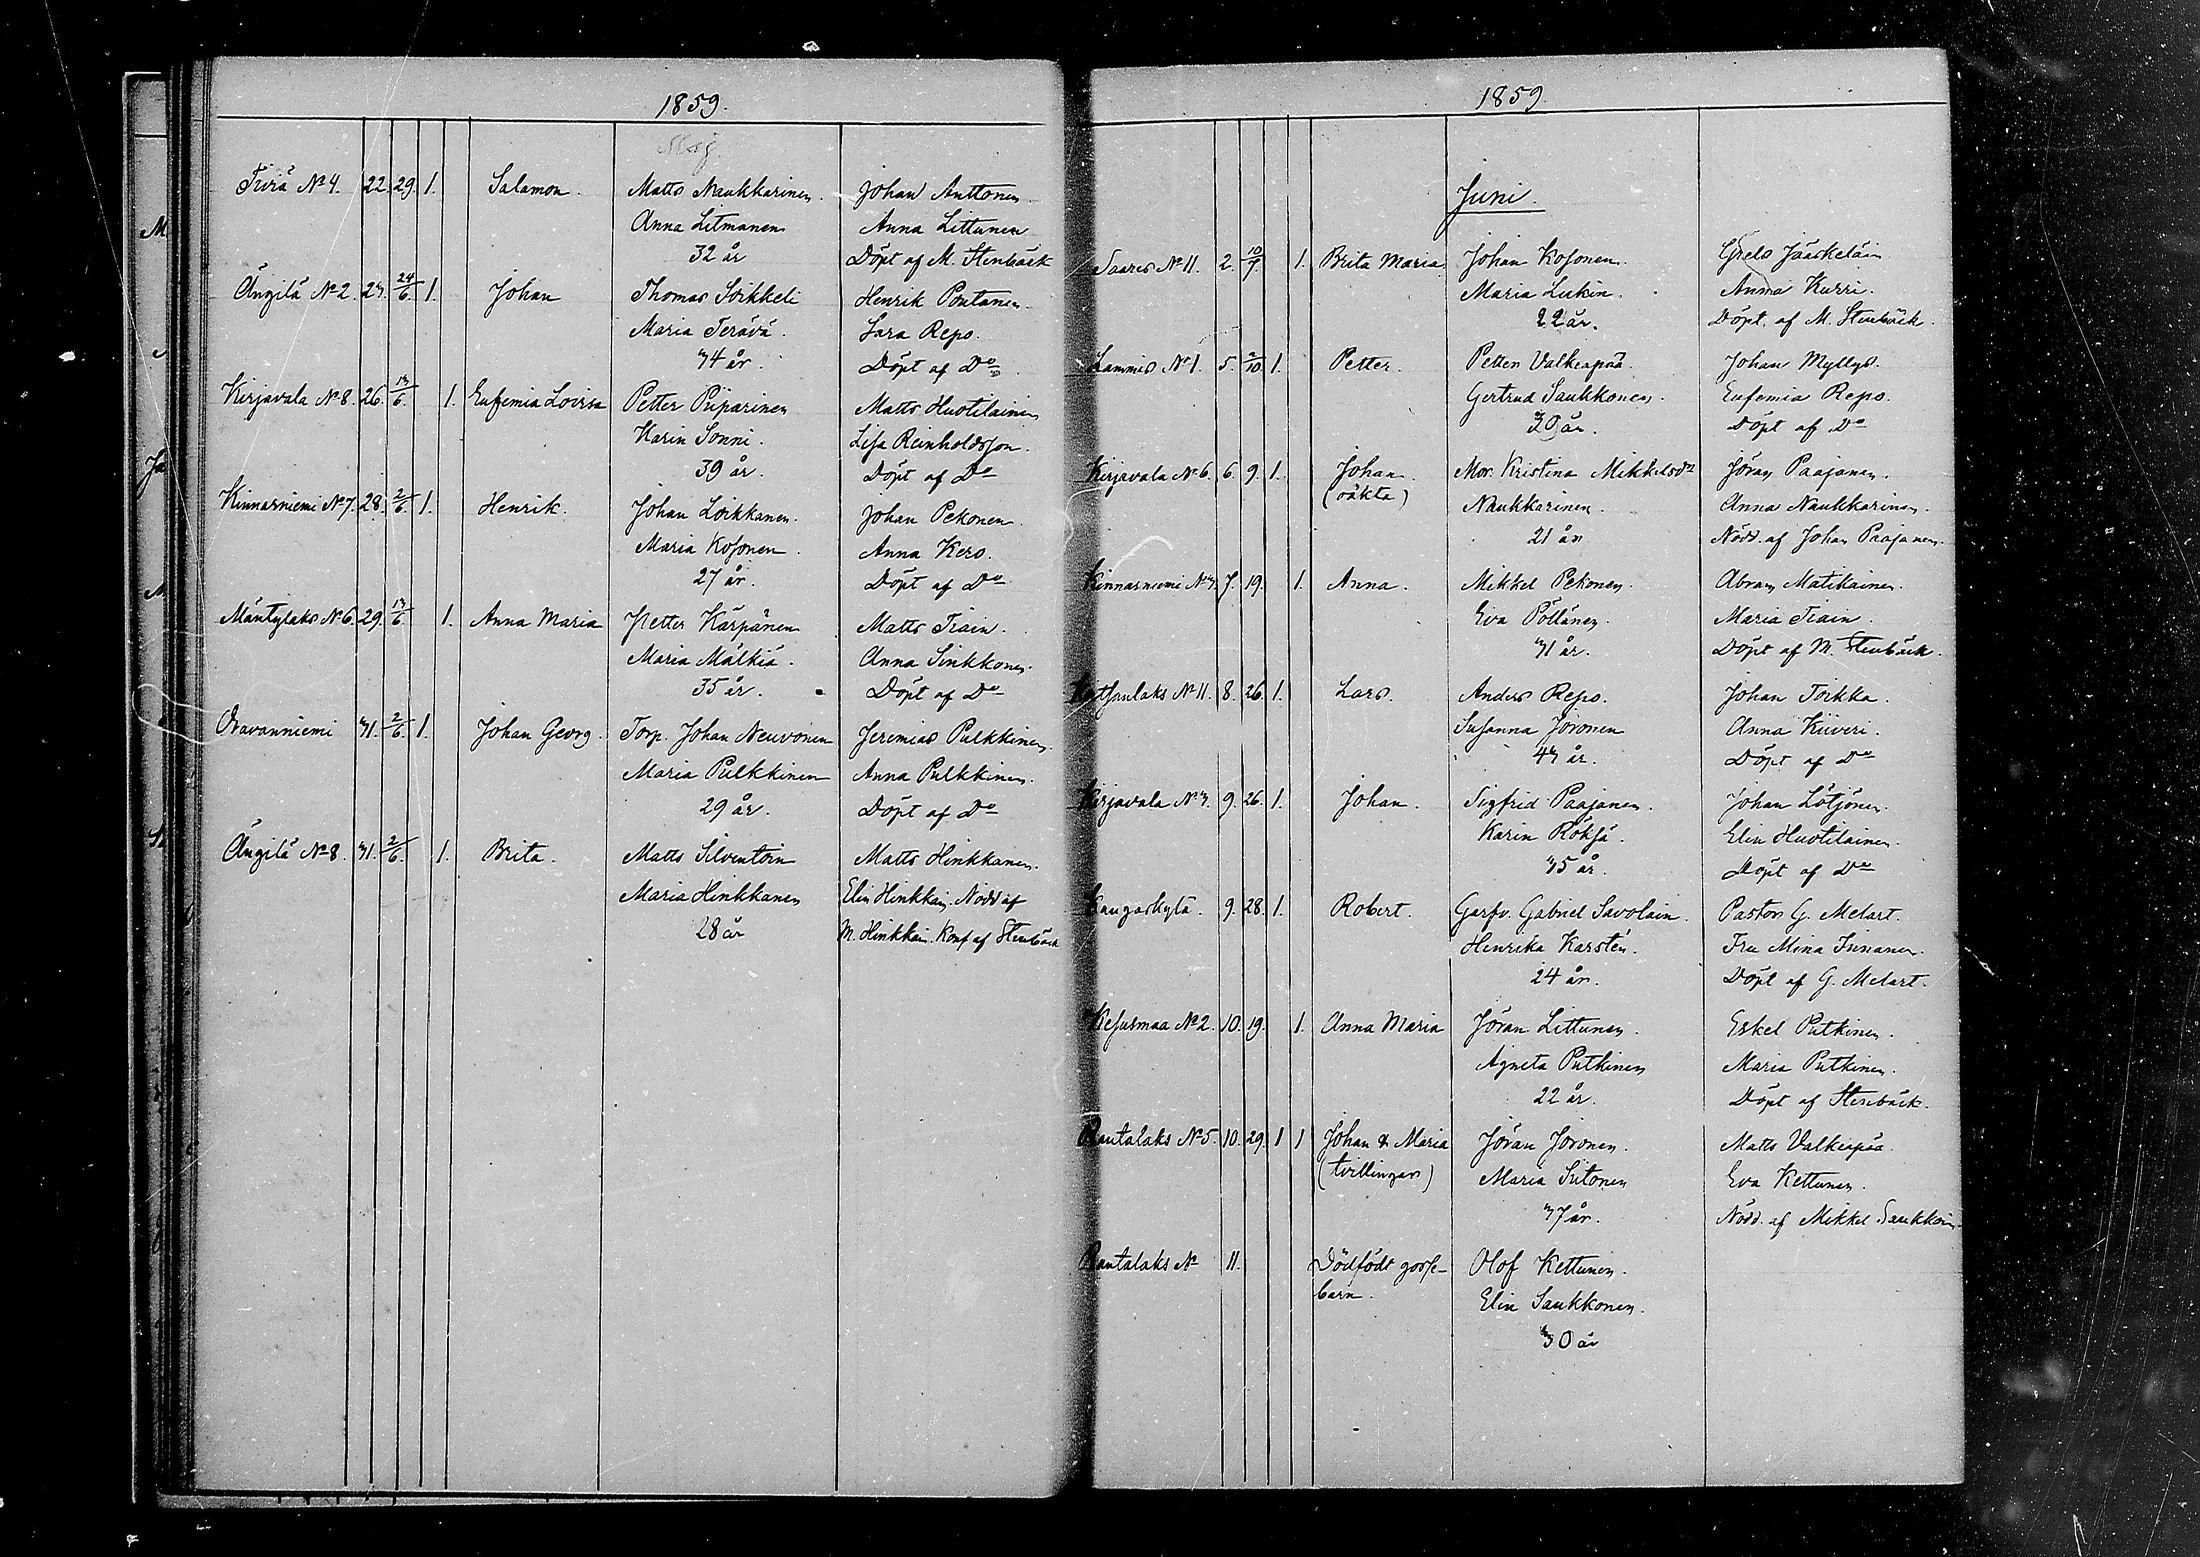 1859.
Maj.
Tiviä No 4. 22. 29. 1. Salamon. Matts Naukkarinen. Johan Anttonen
Anna Litmanen Anna Littunen
32 år Döpt af M. Stenbäck
Ängilä No 2. 23. 24/6. 1. Johan Thomas Soikkeli Henrik Pontanen
Maria Terävä. Sara Repo.
34 år. Döpt af Do
Kirjavala No 8. 26. 13/6. 1. Eufemia Lovisa Petter Piiparinen Matts Huotilainen
Karin Sonni. Lisa Reinholdsson.
39 år. Döpt af Do
Kinnarniemi No 7. 28. 2/6. 1. Henrik. Johan Loikkanen. Johan Pekonen
Maria Kosonen Anna Kero.
27 år. Döpt af Do
Mäntylaks No 6. 29. 13/6 1. Anna Maria Petter Kärpänen Matts Train.
Maria Mälkiä. Anna Sinkkonen.
35 år. Döpt af Do
Oravanniemi 31. 2/6. 1. Johan Georg. Torp. Johan Neuvonen Jeremias Pulkkinen.
Maria Pulkkinen Anna Pulkkinen.
29 år. Döpt af Do
Ängilä No 8. 31. 2/6. 1. Brita. Matts Silventoin Matts Hinkkanen.
Maria Hinkkanen Elin Hinkkain. Nödd af
28 år M. Hinkkain. Konf af Stenbäck
1859.
Juni.
Saares No 11. 2. 10/7. 1. Brita Maria Johan Kosonen. Grels Jääskeläin
Maria Lukin. Anna Kurri.
22 år. Döpt. af M. Stenbäck.
Lammis No 1. 5. 2/10 1. Petter. Petter Valkeapää. Johan Myllys.
Gertrud Saukkonen. Eufemia Repo.
30 år. Döpt af Do
Kirjavala No 6. 6. 9. 1. Johan. Mor. Kristina Mikkelsdr Jöran Paajanen.
(oäkta) Naukkarinen. Anna Naukkarinen.
21 år Nödd. af Johan Paajanen.
Kinnarniemi No 3. 7. 19. 1. Anna. Mikkel Pekonen. Abram Matikainen.
Eva Pöllänen. Maria Train.
31 år. Döpt af M. Stenbäck.
No 11. 8. 26. 1. Lars. Anders Repo. Johan Toikka.
Susanna Joronen Anna Kiiveri.
43 år. Döpt af Do
Kirjavala No 3. 9. 26. 1. Johan. Sigfrid Paajanen. Johan Lötjönen.
Karin Röksä. Elin Huotilainen.
35 år. Döpt af Do
Kangaskylä. 9. 28. 1. Robert. Garfv. Gabriel Savolain. Pastor G. Melart.
Henrika Karstén. Fru Mina Innanen.
24 år. Döpt af G. Melart.
Kesusmaa No 2. 10. 19. 1. Anna Maria Jöran Littunen. Eskel Putkinen.
Agneta Putkinen Maria Putkinen.
22 år. Döpt af Stenbäck.
Rantalaks No 5. 10. 29. 1 1 Johan & Maria Jöran Joronen. Matts Valkeapää.
(tvillingar) Maria Sutonen Eva Kettunen.
37 år. Nödd. af Mikkel Saukkoin.
Rantalaks No 11. Dödfödt gosse- Olof Kettunen.
barn. Elin Saukkonen.
30 år